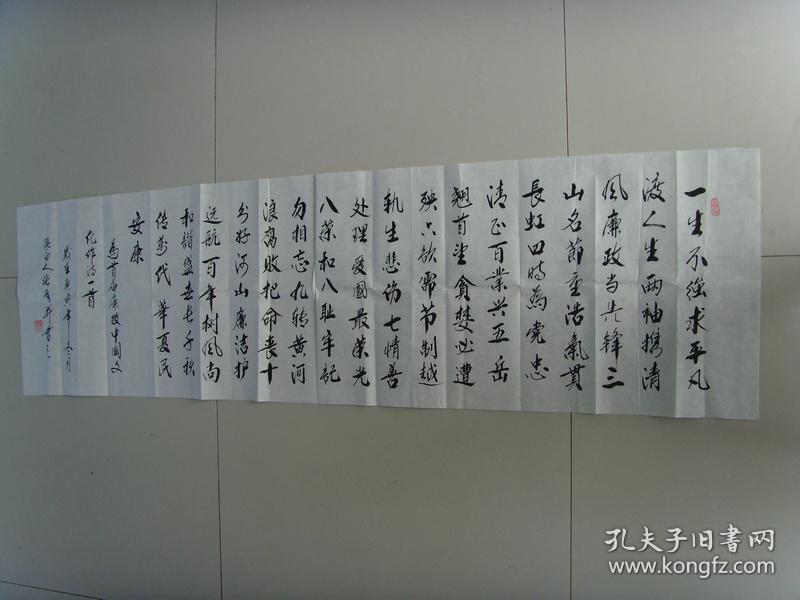 一生不强求平凡
渡人生两袖携清
风廉政当先锋三
山名節重浩氣貫
長虹四時為党忠
清正百業兴五岳
翘首望貪婪必遭
殃六欲需节制越
軌生悲伤七情善
处理爱國最荣光
八荣和八耻牢記
勿相忘九转黄河
浪腐败把命丧十
分好河山廉洁护
远航百年树风尚
和谐盛世长千秋
传万代華夏民
安康
為首届廉政中國文
化作诗一首
孔夫子旧書网
www.kongfz.com